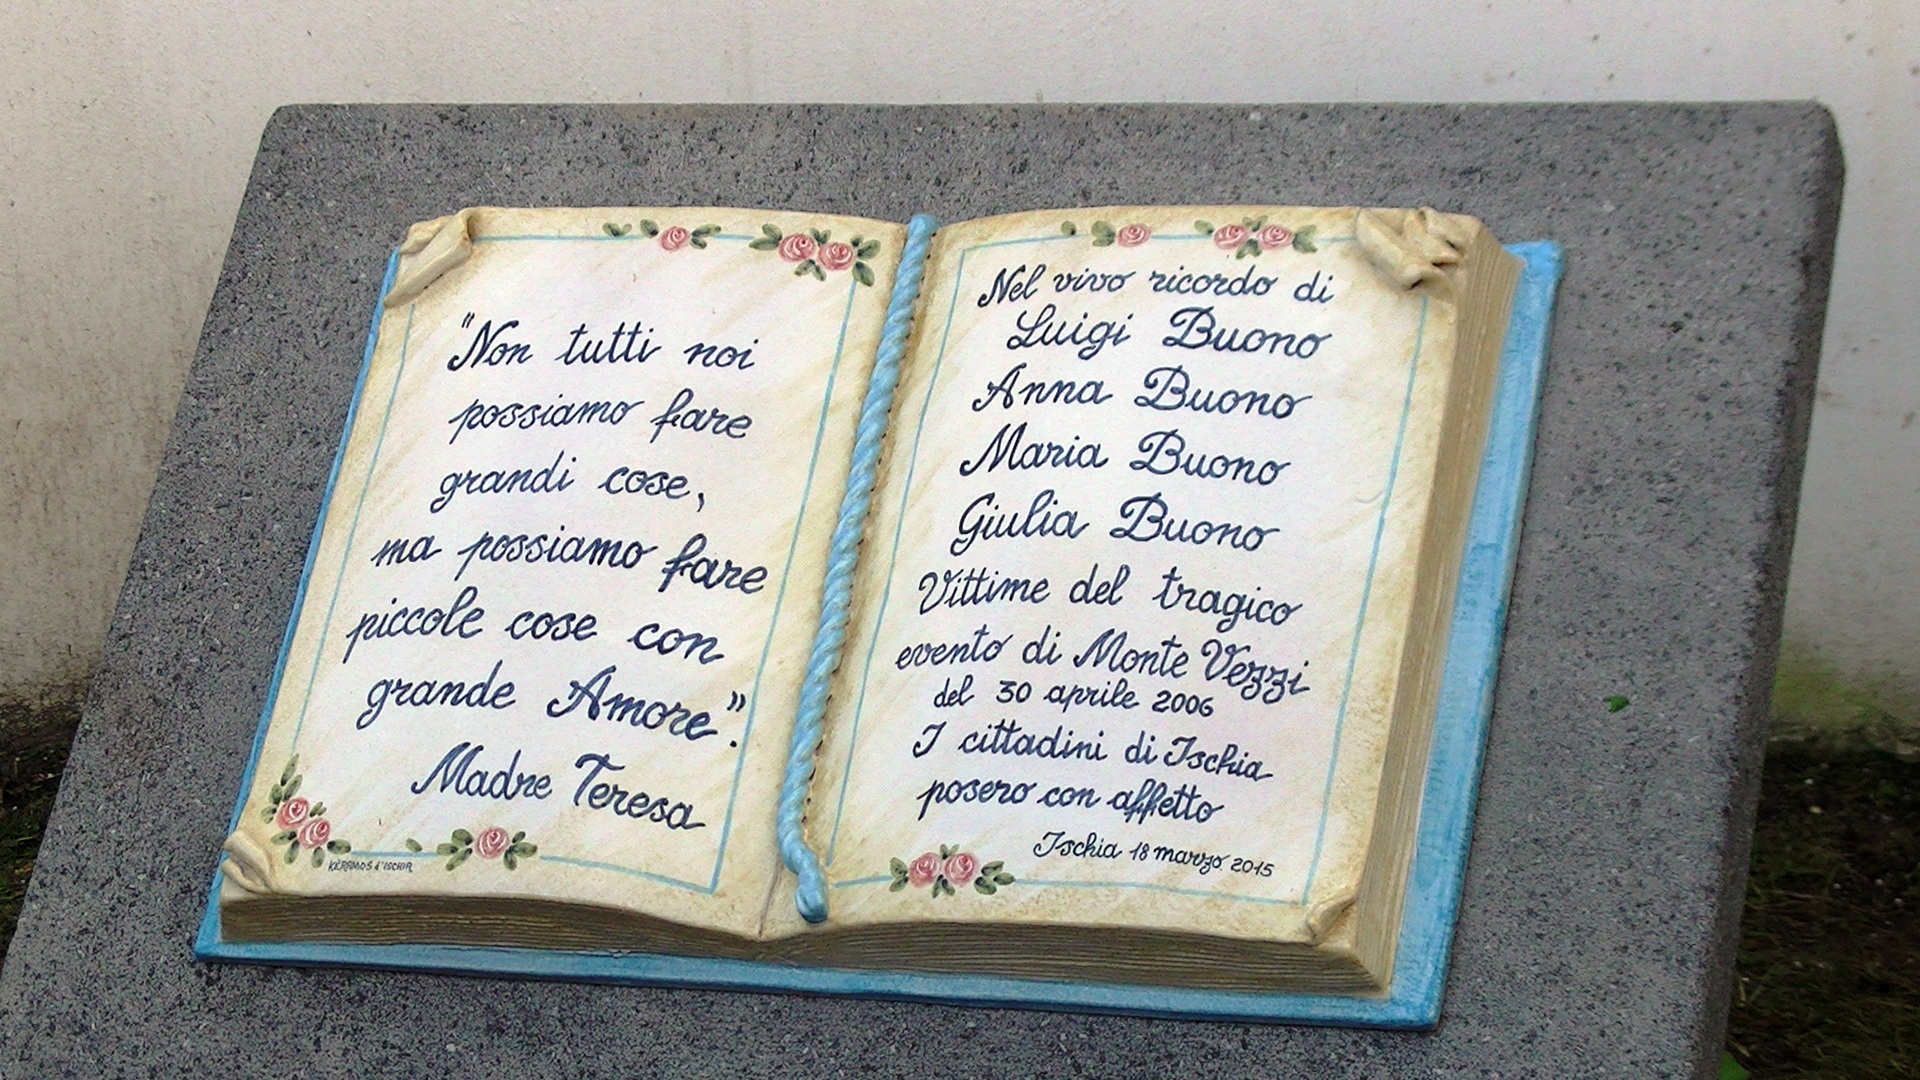 "Non tutti noi
possiamo fare
grandi cose,
ma possiamo fare
piccole cose con
grande Amore".
Madre Teresa
KERAMOS d'ISCHIA
Nel vivo ricordo di
Luigi Buono
Anna Buono
Maria Buono
Giulia Buono
Vittime del tragico
evento di Monte Vezzi
del 30 aprile 2006
I cittadini di Ischia
posero con affetto
Ischia 18 marzo 2015